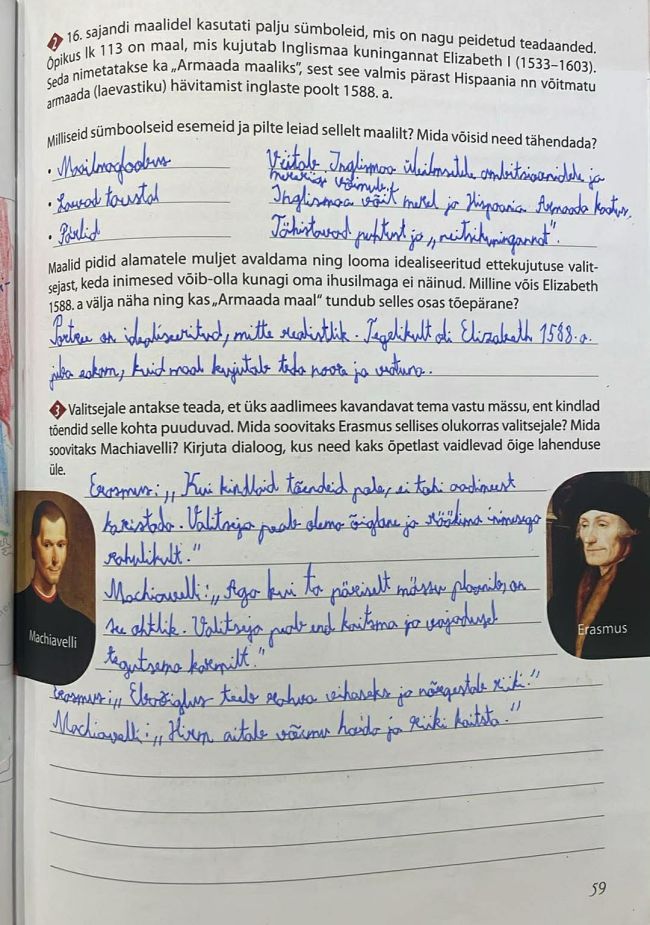 2 16. sajandi maalidel kasutati palju sümboleid, mis on nagu peidetud teadaanded.
Õpikus lk 113 on maal, mis kujutab Inglismaa kuningannat Elizabeth I (1533–1603).
Seda nimetatakse ka „Armaada maaliks”, sest see valmis pärast Hispaania nn võitmatu
armaada (laevastiku) hävitamist inglaste poolt 1588. a.
Milliseid sümboolseid esemeid ja pilte leiad sellelt maalilt? Mida võisid need tähendada?
• Maailmagloobus Viitab Inglismaa ülemaailmsetele ambitsioonidele ja
mereriigi võimule.
• Laevad taustal Inglismaa võit merel ja Hispaania Armaada kaotus.
• Pärlid Tähistavad puhtust ja „neitsikuningannat”.
Maalid pidid alamatele muljet avaldama ning looma idealiseeritud ettekujutuse valit-
sejast, keda inimesed võib-olla kunagi oma ihusilmaga ei näinud. Milline võis Elizabeth
1588. a välja näha ning kas „Armaada maal“ tundub selles osas tõepärane?
Portree on idealiseeritud, mitte realistlik. Tegelikult oli Elizabeth 1588. a.
juba eakam, kuid maal kujutab teda noore ja veatuna.
3 Valitsejale antakse teada, et üks aadlimees kavandavat tema vastu mässu, ent kindlad
tõendid selle kohta puuduvad. Mida soovitaks Erasmus sellises olukorras valitsejale? Mida
soovitaks Machiavelli? Kirjuta dialoog, kus need kaks õpetlast vaidlevad õige lahenduse
üle.
Erasmus: „Kui kindlaid tõendeid pole, ei tohi aadlimeest
karistada. Valitseja peab olema õiglane ja rääkima inimesega
rahulikult.”
Machiavelli: „Aga kui ta päriselt mässu plaanib, on
see ohtlik. Valitseja peab end kaitsma ja vajadusel
tegutsema karmilt.”
Erasmus: „Ebaõiglus teeb rahva vihaseks ja nõrgestab riiki.”
Machiavelli: „Hirm aitab võimu hoida ja riiki kaitsta.”
Machiavelli
Erasmus
59